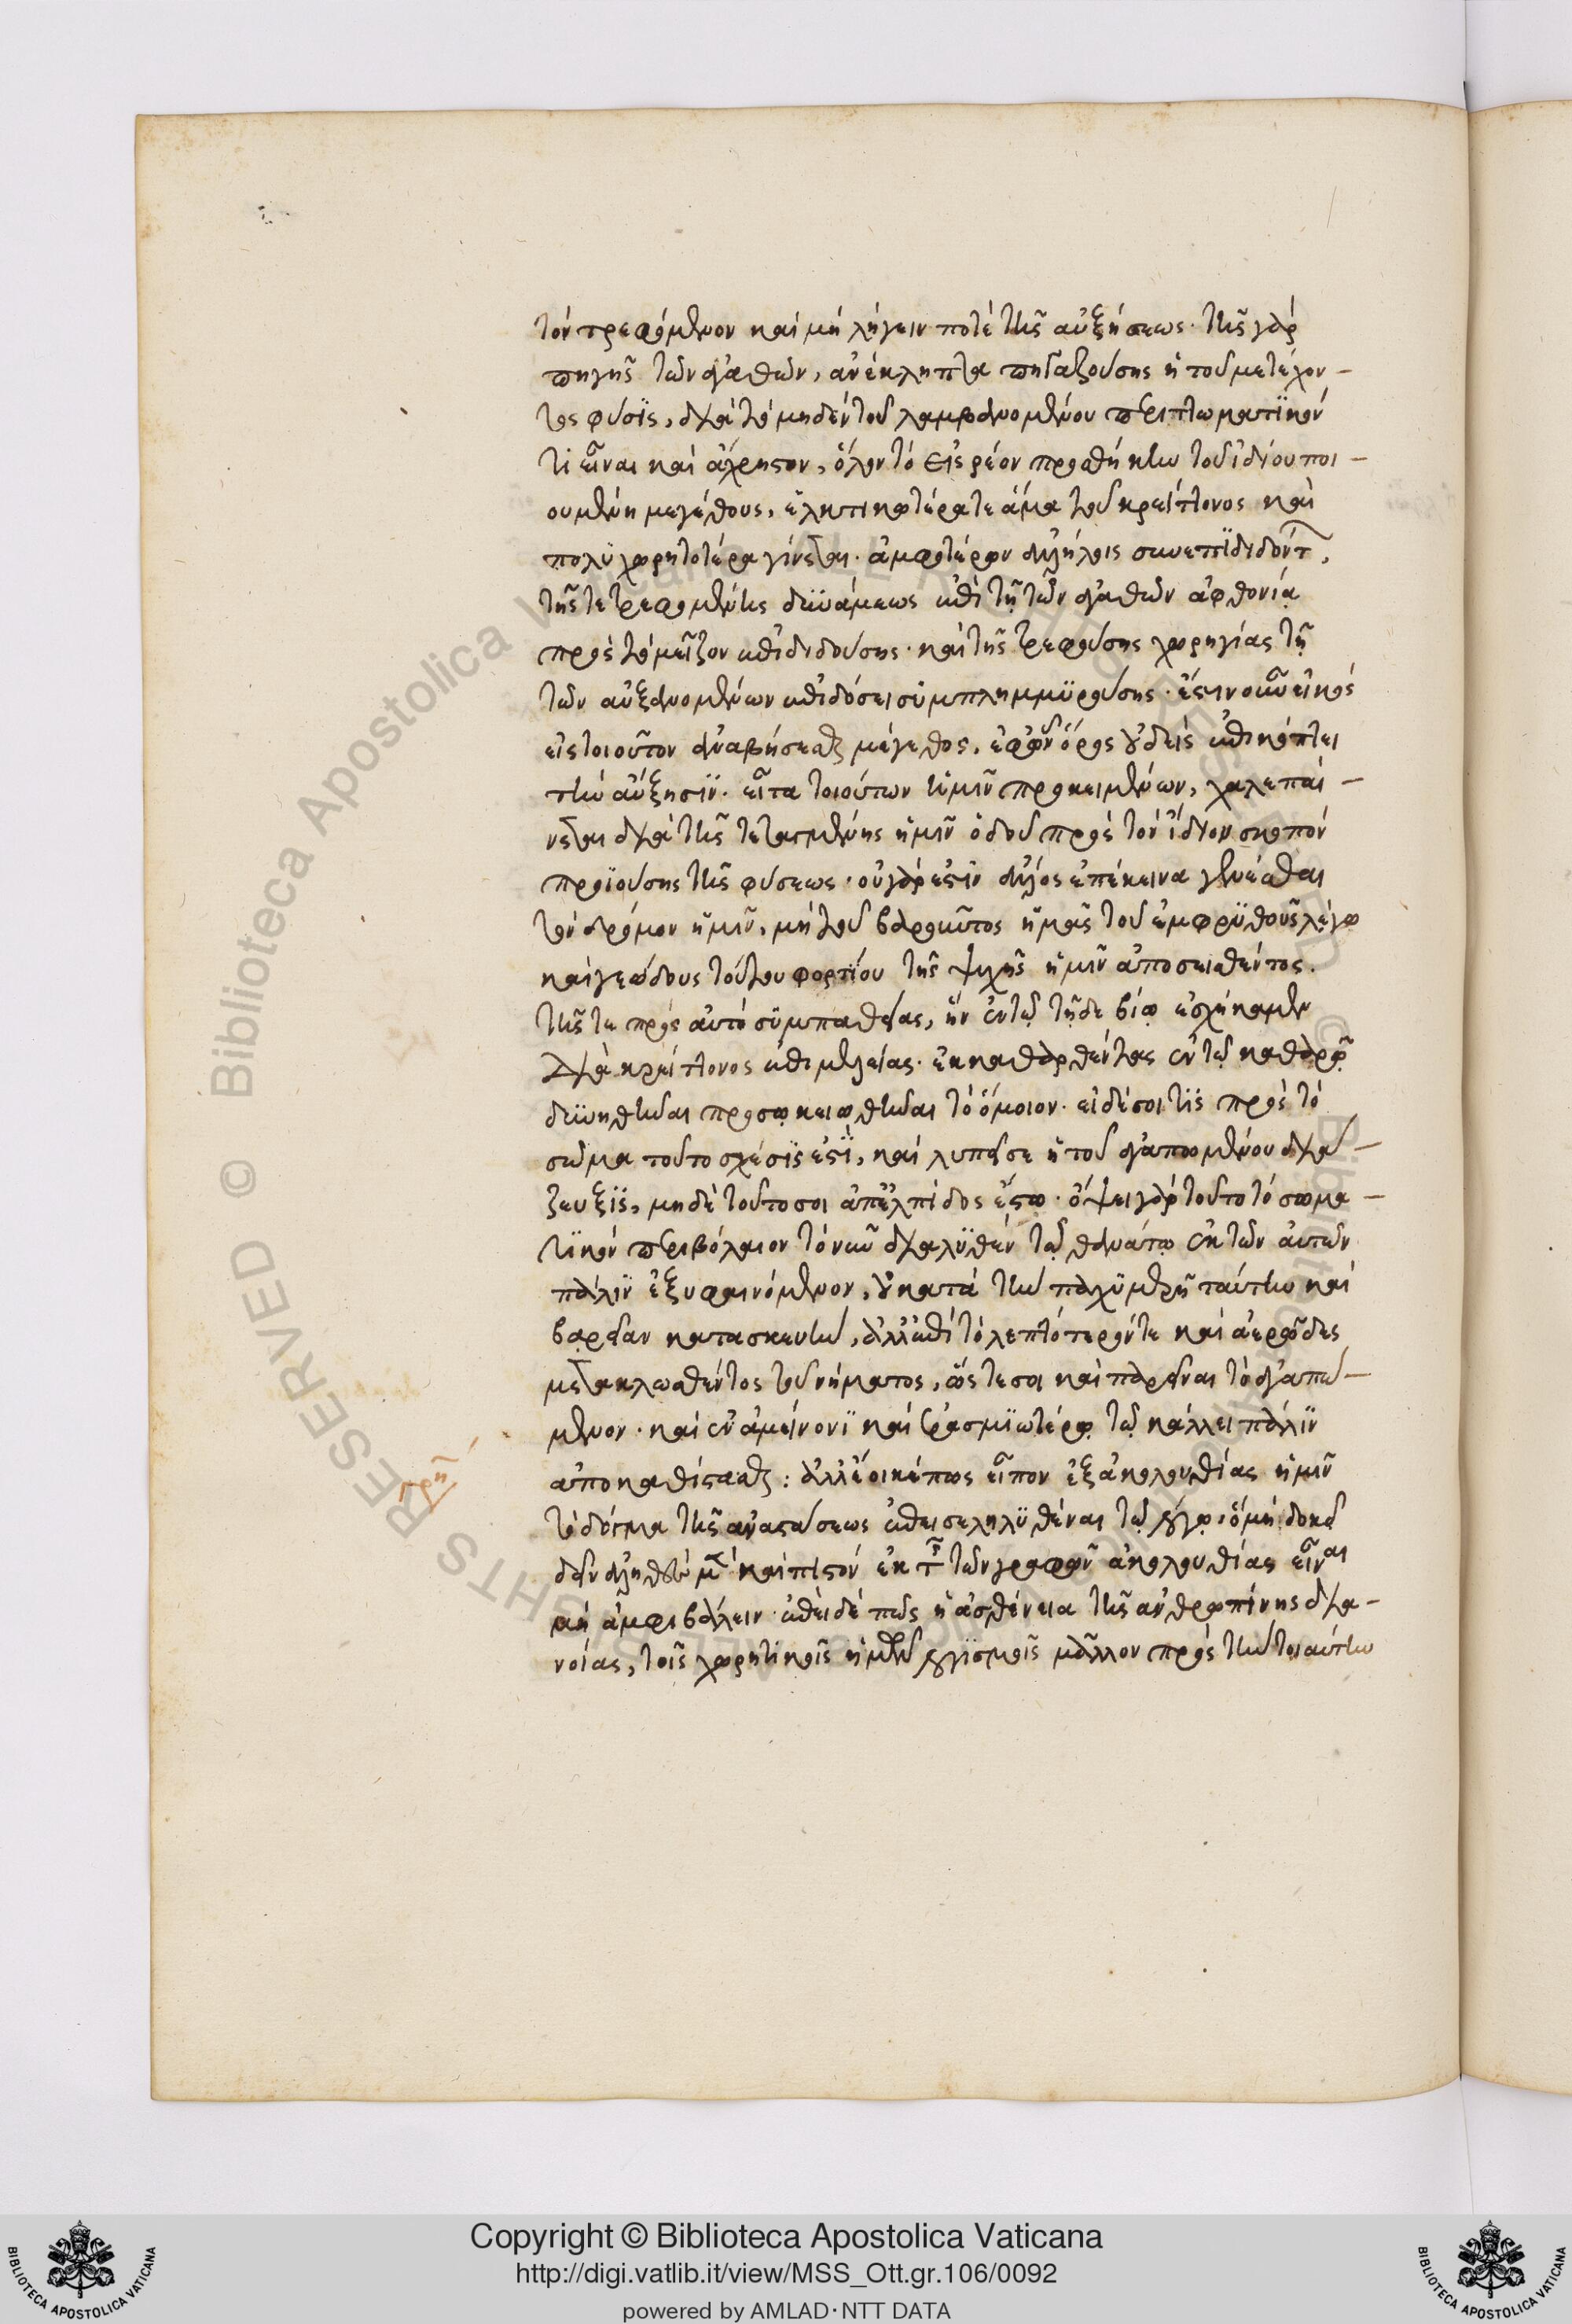 τὸν τρεφόμενον καὶ μὴ λήγειν ποτὲ τῆς αὐξήσεως. τῆς γὰρ
πηγῆς τῶν ἀγαθῶν, ἀνέκλειπτα πηγαζούσης ἡ τοῦ μετέχον-
τος φύσϊς, διὰ τὸ μηδὲν τοῦ λαμβανομένου περιττωματϊκόν
τι εἶναι καὶ ἄχρηστον, ὅλον τὸ εἰσρέον προσθήκην τοῦ ἰδίου ποι-
ουμένη μεγέθους, ἑλκτικωτέρα τε ἅμα τοῦ κρείττονος καὶ
πολϋχωρητοτέρα γίνεται. ἀμφοτέρων ἀλλήλοις συνεπϊδιδόντ,
τῆς τε τρεφομένης δυνάμεως ἐπὶ τῇ τῶν ἀγαθῶν ἀφθονίᾳ
πρὸς τὸ μεῖζον ἐπιδιδούσης. καὶ τῆς τρεφούσης χορηγίας τῇ
τῶν αὐξανομένων ἐπιδόσει σϋμπλημμϋρούσης. ἔστιν οὖν εἰκὸς
εἰς τοιοῦτον ἀναβήσεσθαι μέγεθος, ἐφ ὧν ὅρος οὐδεὶς ἐπικόπτει
τὴν αὔξησϊν. εἶτα τοιούτων ἡμῖν προκειμένων, χαλεπαί-
νεται διὰ τῆς τεταγμένης ἡμῖν ὁδοῦ πρὸς τὸν ἴδιον σκοπὸν
προϊούσης τῆς φύσεως. οὐ γάρ ἐστϊν ἄλλως ἐπέκεινα γενέσθαι
τὸν δρόμον ἡμῖν, μὴ τοῦ βαροῦντος ἡμᾶς τοῦ ἐμφρϋθοῦς λέγω
καὶ γεώδους τούτου φορτίου τῆς ψυχῆς ἡμῖν ἀποσεισθέντος.
τῆς τε πρὸς αὐτὸ σϋμπαθείας, ἣν ἐν τῷ τῇδε βίῳ ἐσχήκαμεν
διὰ κρείττονος ἐπιμελείας. ἐκκαθαρθέντας ἐν τῷ καθαρῷ
δυνηθῆναι προσοικειωθῆναι τὸ ὅμοιον. εἰ δέ σοι τϊς πρὸς τὸ
σῶμα τοῦτο σχέσϊς ἐστϊ, καὶ λυπεῖ σε ἡ τοῦ ἀγαπωμένου διά-
ζευξϊς, μηδὲ τοῦτο σοι ἀπ ἐλπίδος ἔστω. ὄψει γὰρ τοῦτο τὸ σωμα-
τϊκὸν περιβόλαιον τὸ νῦν διαλϋθὲν τῷ θανάτῳ ἐκ τῶν αὐτῶν
πάλϊν ἐξυφαινόμενον, οὐ κατὰ τὴν παχϋμερῆ ταύτην καὶ
βαρεῖαν κατασκευὴν, ἀλλ ἐπὶ τὸ λεπτότερόν τε καὶ ἀερῶδες
μετακλωσθέντος τοῦ νήματος, ὥστε σοι καὶ παρεῖναι τὸ ἀγαπώ-
μενον. καὶ ἐν ἀμείνονϊ καὶ ἐρασμϊωτέρῳ τῷ κάλλει πάλϊν
ἀποκαθίστασθαι: ἀλλ ἔοικέ πως εἶπον ἐξ ἀκολουθίας ἡμῖν
τὸ δόγμα τῆς ἀναστάσεως ἐπεισεληλϋθέναι τῷ λόγῳ. ὃ μή δοκεῖ
δεῖν ἀληθῶ μ καὶ πιστὸν ἐκ τ τῶν γραφῶν ἀκολουθίας εἶναι
μὴ ἀμφιβάλλειν. ἐπεὶ δέ πως ἡ ἀσθένεια τῆς ἀνθρωπίνης δια-
νοίας, τοῖς χωρητικοῖς ἡμῖν λογϊσμοῖς μᾶλλον πρὸς τὴν τοιαύτην
Copyright © Biblioteca Apostolica Vaticana
http://digi.vatlib.it/view/MSS_Ott.gr.106/0092
powered by AMLAD·NTT DATA